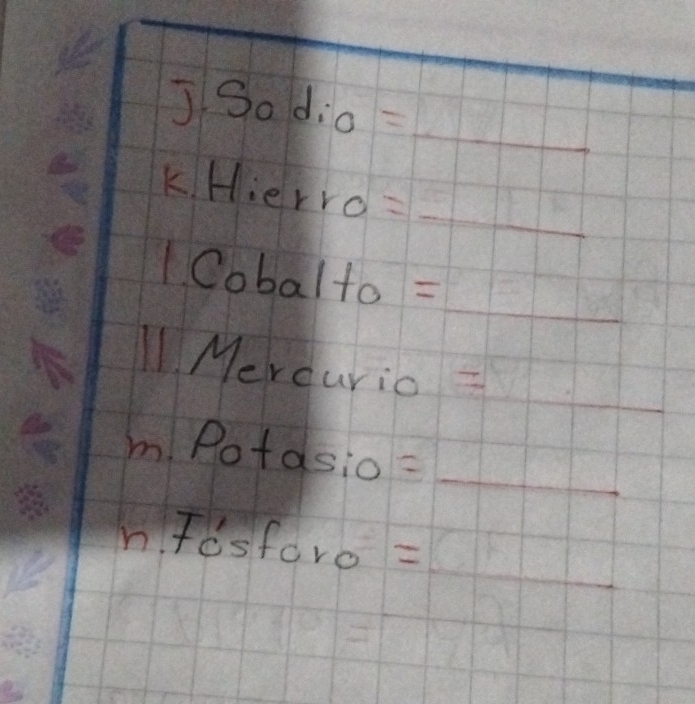 J. Sodio = ______
K. Hierro = ______
l. Cobalto = ______
ll. Mercurio = ______
m. Potasio = ______
n. Fósforo = ______